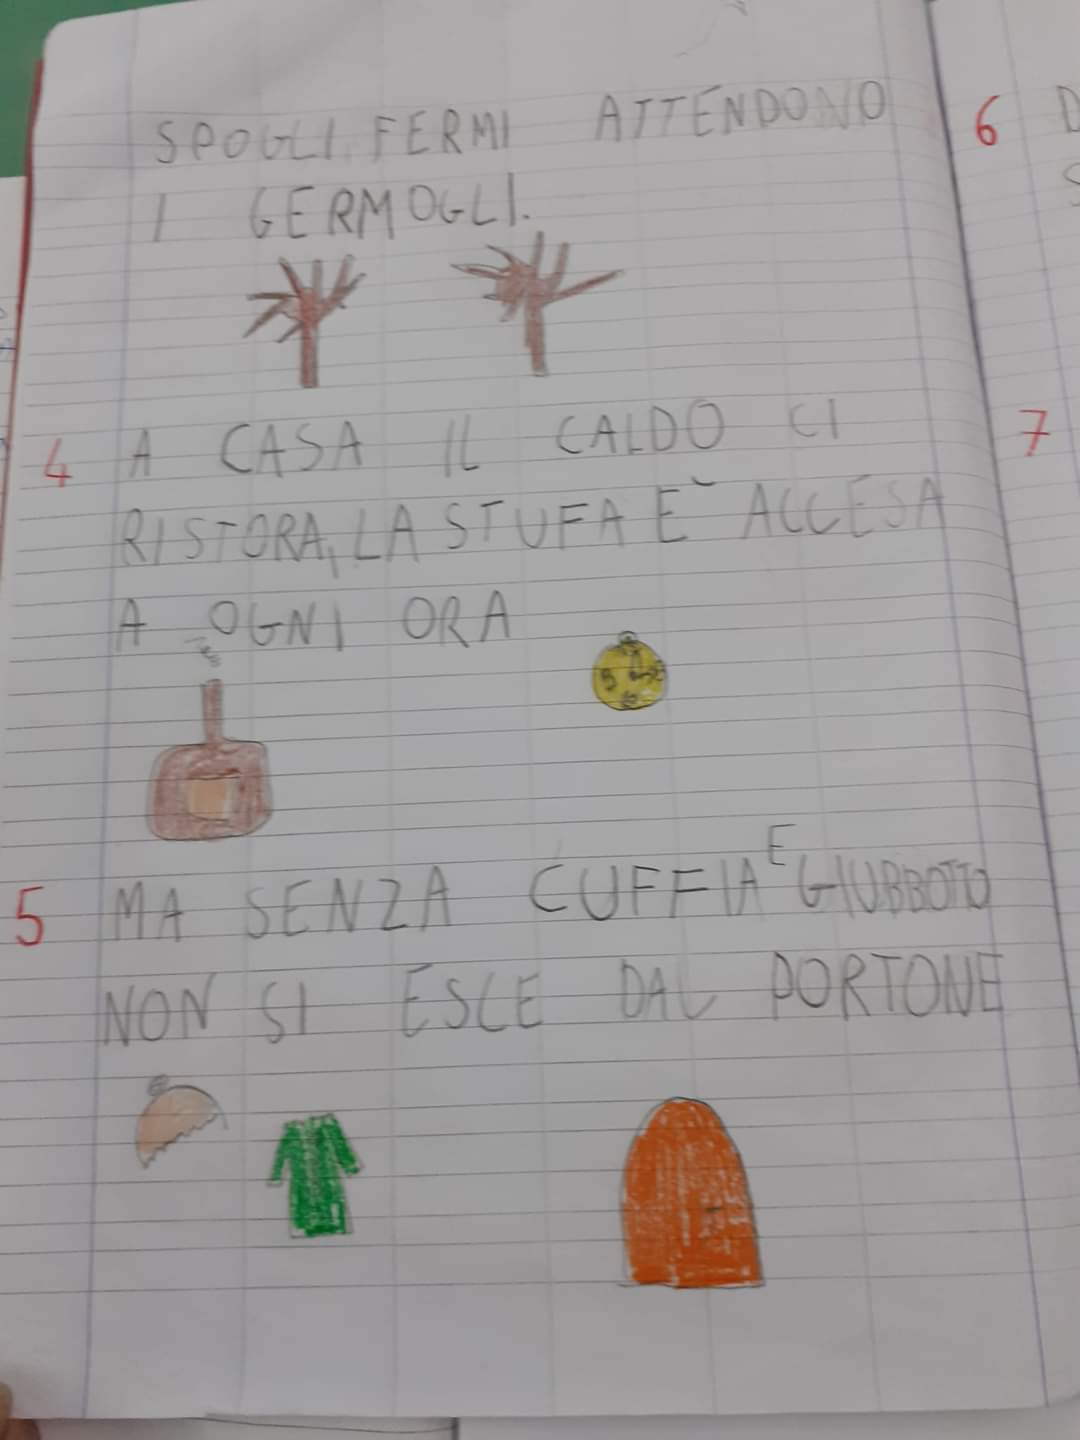 SPOGLI FERMI ATTENDONO
I GERMOGLI.
4 A CASA IL CALDO CI
RISTORA, LA STUFA È ACCESA
A OGNI ORA
5 MA SENZA CUFFIA E GIUBBOTTO
NON SI ESCE DAL PORTONE
6 D
S
7